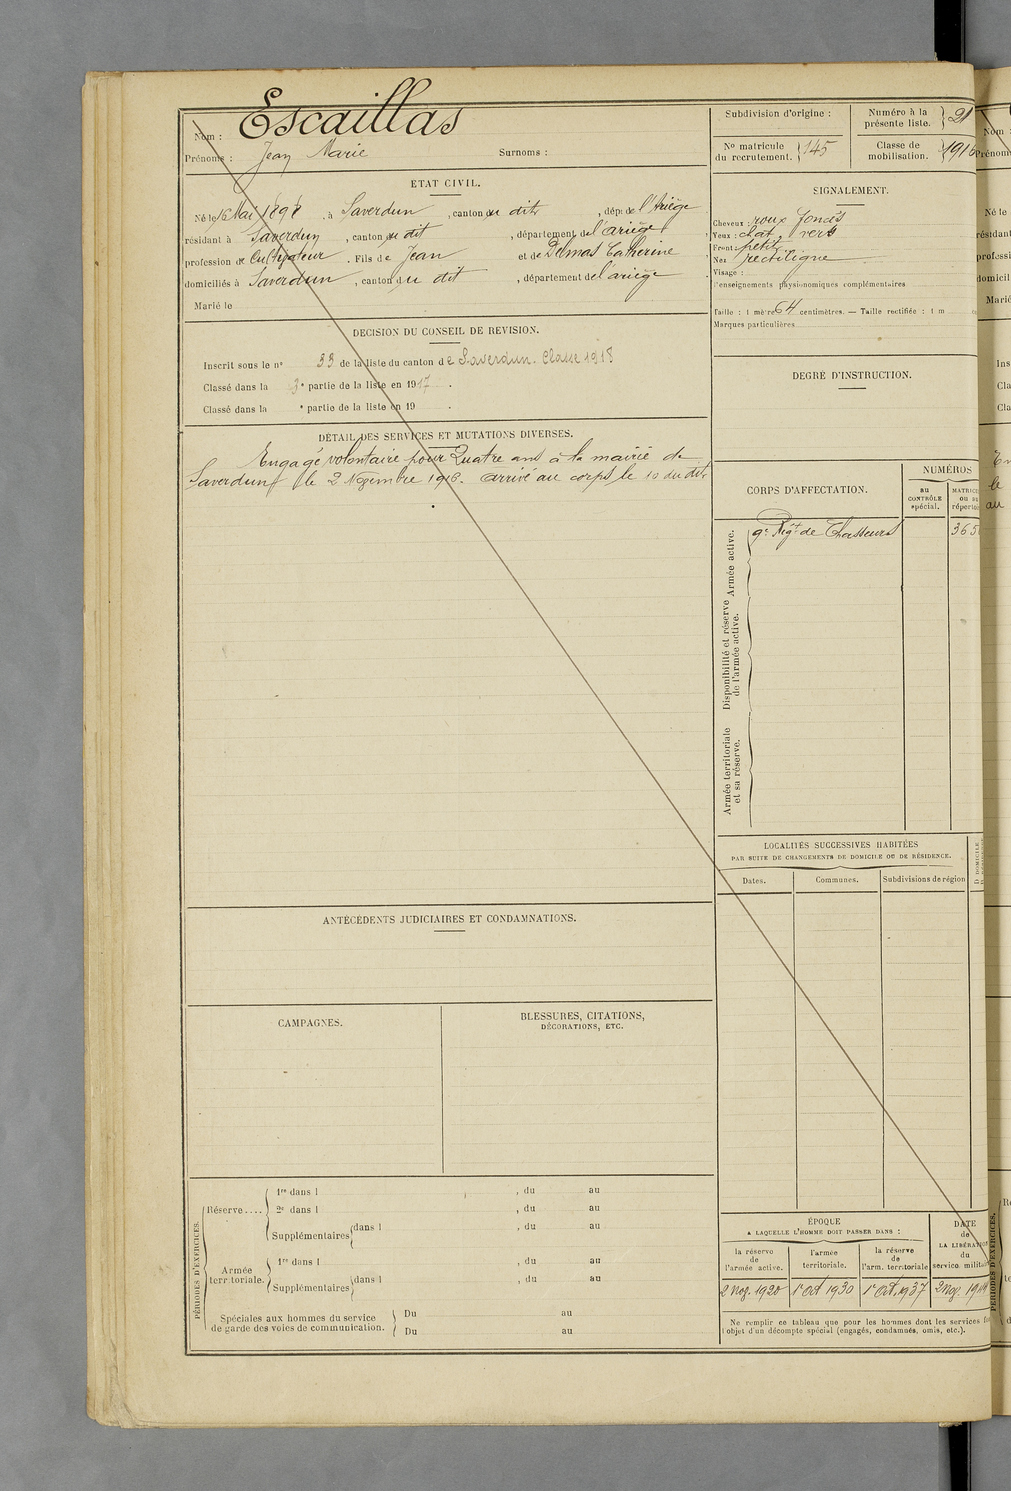 Nom : Escaillas
Prénoms : Jean Marie Surnoms :
ETAT CIVIL.
Né le 16 Mai 1898, à Saverdun, canton du dit, dép. de l'Ariège
résidant à Saverdun, canton du dit, département de l'ariège
profession de Cultivateur. Fils de Jean et de Delmas Catherine
domiciliés à Saverdun, canton du dit, département de l'ariège
Marié le
DECISION DU CONSEIL DE REVISION.
Inscrit sous le n° 33 de la liste du canton de Saverdun. Classe 1918
Classé dans la 3e partie de la liste en 1917.
Classé dans la e partie de la liste en 19 .
DÉTAIL DES SERVICES ET MUTATIONS DIVERSES.
Engagé volontaire pour Quatre ans à la mairie de
Saverdun le 2 Novembre 1916. arrivé au corps le 10 du dit.
ANTÉCÉDENTS JUDICIAIRES ET CONDAMNATIONS.
CAMPAGNES.
BLESSURES, CITATIONS,
DÉCORATIONS, ETC.
PÉRIODES D'EXERCICES.
Réserve....
1re dans l , du au
2e dans l , du au
Supplémentaires dans l , du au
Armée
territoriale.
1re dans l , du au
Supplémentaires dans l , du au
Spéciales aux hommes du service
de garde des voies de communication.
Du au
Du au
Subdivision d'origine :
Numéro à la
présente liste. 21
N° matricule
du recrutement. 145
Classe de
mobilisation. 1916
SIGNALEMENT.
Cheveux : roux foncés
Yeux : chat. vert
Front : petit
Nez rectiligne
Visage :
Renseignements physionomiques complémentaires
Taille : 1 mètre 64 centimètres. — Taille rectifiée : 1 m
Marques particulières
DEGRÉ D'INSTRUCTION.
CORPS D'AFFECTATION.
NUMÉROS
au
CONTRÔLE
spécial.
MATRICE
OU AU
répertoi
Armée active.
9e Régt de Chasseurs 365
Disponibilité et réserve
de l'armée active.
Armée territoriale
et sa réserve.
LOCALITÉS SUCCESSIVES HABITÉES
PAR SUITE DE CHANGEMENTS DE DOMICILE OU DE RÉSIDENCE.
Dates. Communes. Subdivisions de région
ÉPOQUE
A LAQUELLE L'HOMME DOIT PASSER DANS :
la réserve
de
l'armée active.
l'armée
territoriale.
la réserve
de
l'arm. territoriale
DATE
de
LA LIBÉRATION
du
service milit
2 Nov. 1920 1er Oct 1930 1er Oct. 1937 2 Nov. 19
Ne remplir ce tableau que pour les hommes dont les services
l'objet d'un décompte spécial (engagés, condamnés, omis, etc.).